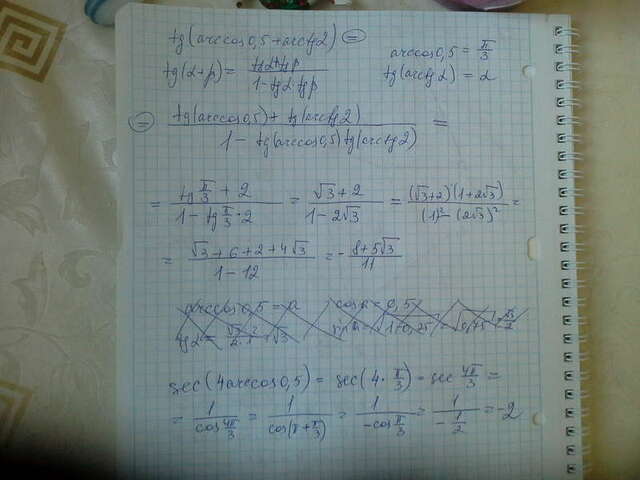 tg(arccos0,5+arctg2) =
arccos0,5 = π/3
tg(α+β) = (tgα+tgβ)/(1-tgα·tgβ)
tg(arctg2) = 2
= (tg(arccos0,5) + tg(arctg2))/(1 - tg(arccos0,5)tg(arctg2)) =
= (tg π/3 + 2)/(1 - tg π/3 · 2) = (√3+2)/(1-2√3) = ((√3+2)(1+2√3))/((1)² - (2√3)²) =
= (√3+6+2+4√3)/(1-12) = - (8+5√3)/11
arccos0,5 = α cosα = 0,5
sec(4arccos0,5) = sec(4·π/3) = sec 4π/3 =
= 1/(cos 4π/3) = 1/(cos(π+π/3)) = 1/(-cos π/3) = 1/(-1/2) = -2